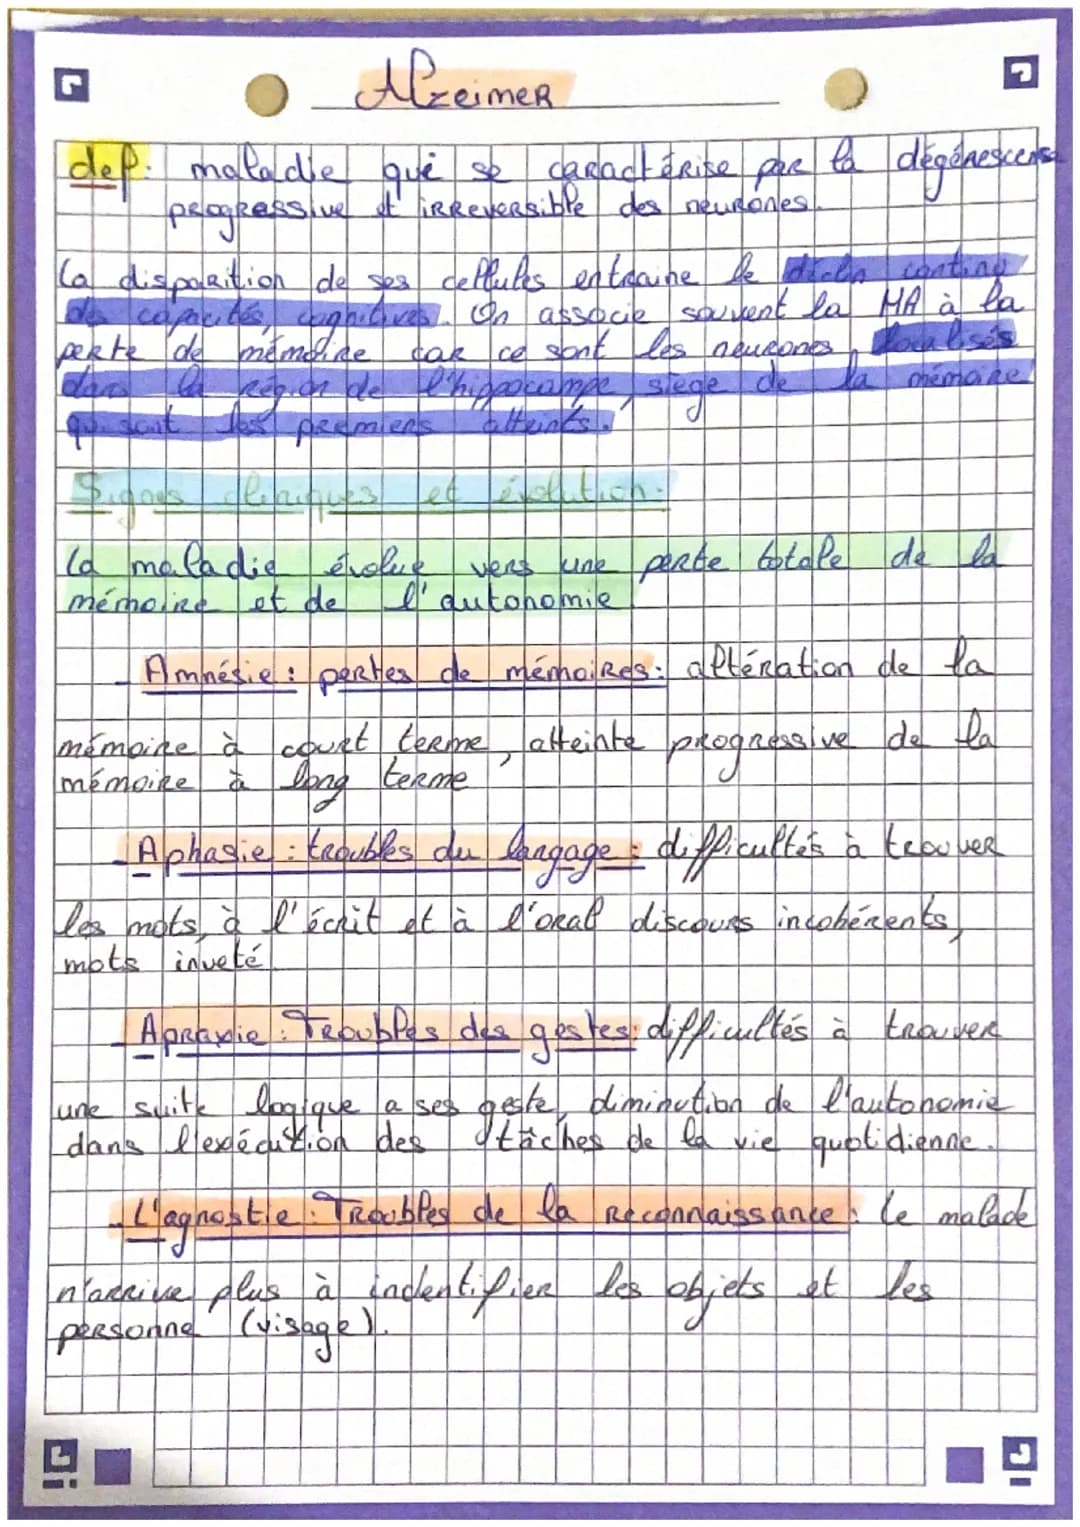 Alzeimer
def: maladie qui se caractérise par la dégénérescens
progressive et irreversible des neurones.
la disparition de ses cellules entraine le déclin continu
des capacités cognitives. On associe souvent la MA à la
perte de mémoire car ce sont les neurones localisés
dans la région de l'hippocampe, siège de la mémoire
qui sont les premiers atteints.
Signes cliniques et évolution:
la maladie évolue vers une perte totale de la
mémoire et de l'autonomie
- Amnésie : pertes de mémoires: altération de la
mémoire à court terme, atteinte progressive de la
mémoire à long terme
- Aphasie : troubles du langage : difficultés à trouver
les mots, à l'écrit et à l'oral discours incohérents,
mots inveté
- Apraxie : Troubles des gestes: difficultés à trouver
une suite logique a ses geste, diminution de l'autonomie
dans l'exécution des tâches de la vie quotidienne.
- L'agnostie : Troubles de la reconnaissance : le malade
n'arrive plus à indentifier les objets et les
personne (visage).